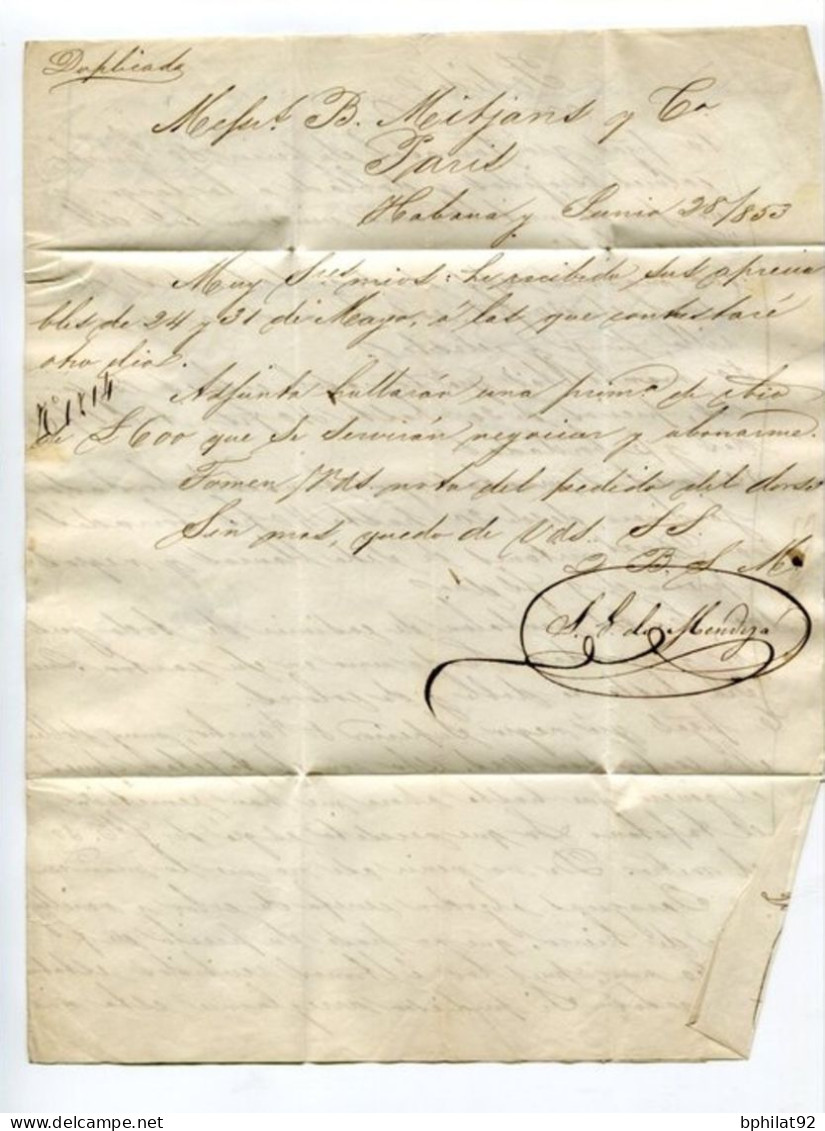 Duplicado
Messrs. B. Mitjans y Co.
Paris
Habana y Junio 28/853
Muy Sres. mios: he recibido sus aprecia
bles de 24 y 31 de Mayo, á las que contestaré
otro dia.
Nº 1814
Adjunta hallarán una prima. de cbio
de £600 que se servirán negociar y abonarme.
Tomen Vds. nota del pedido del dorso
Sin mas, quedo de Vds. S. S.
Q. B. S. M.
de Mendizá
Delcampe.net
bphilat92